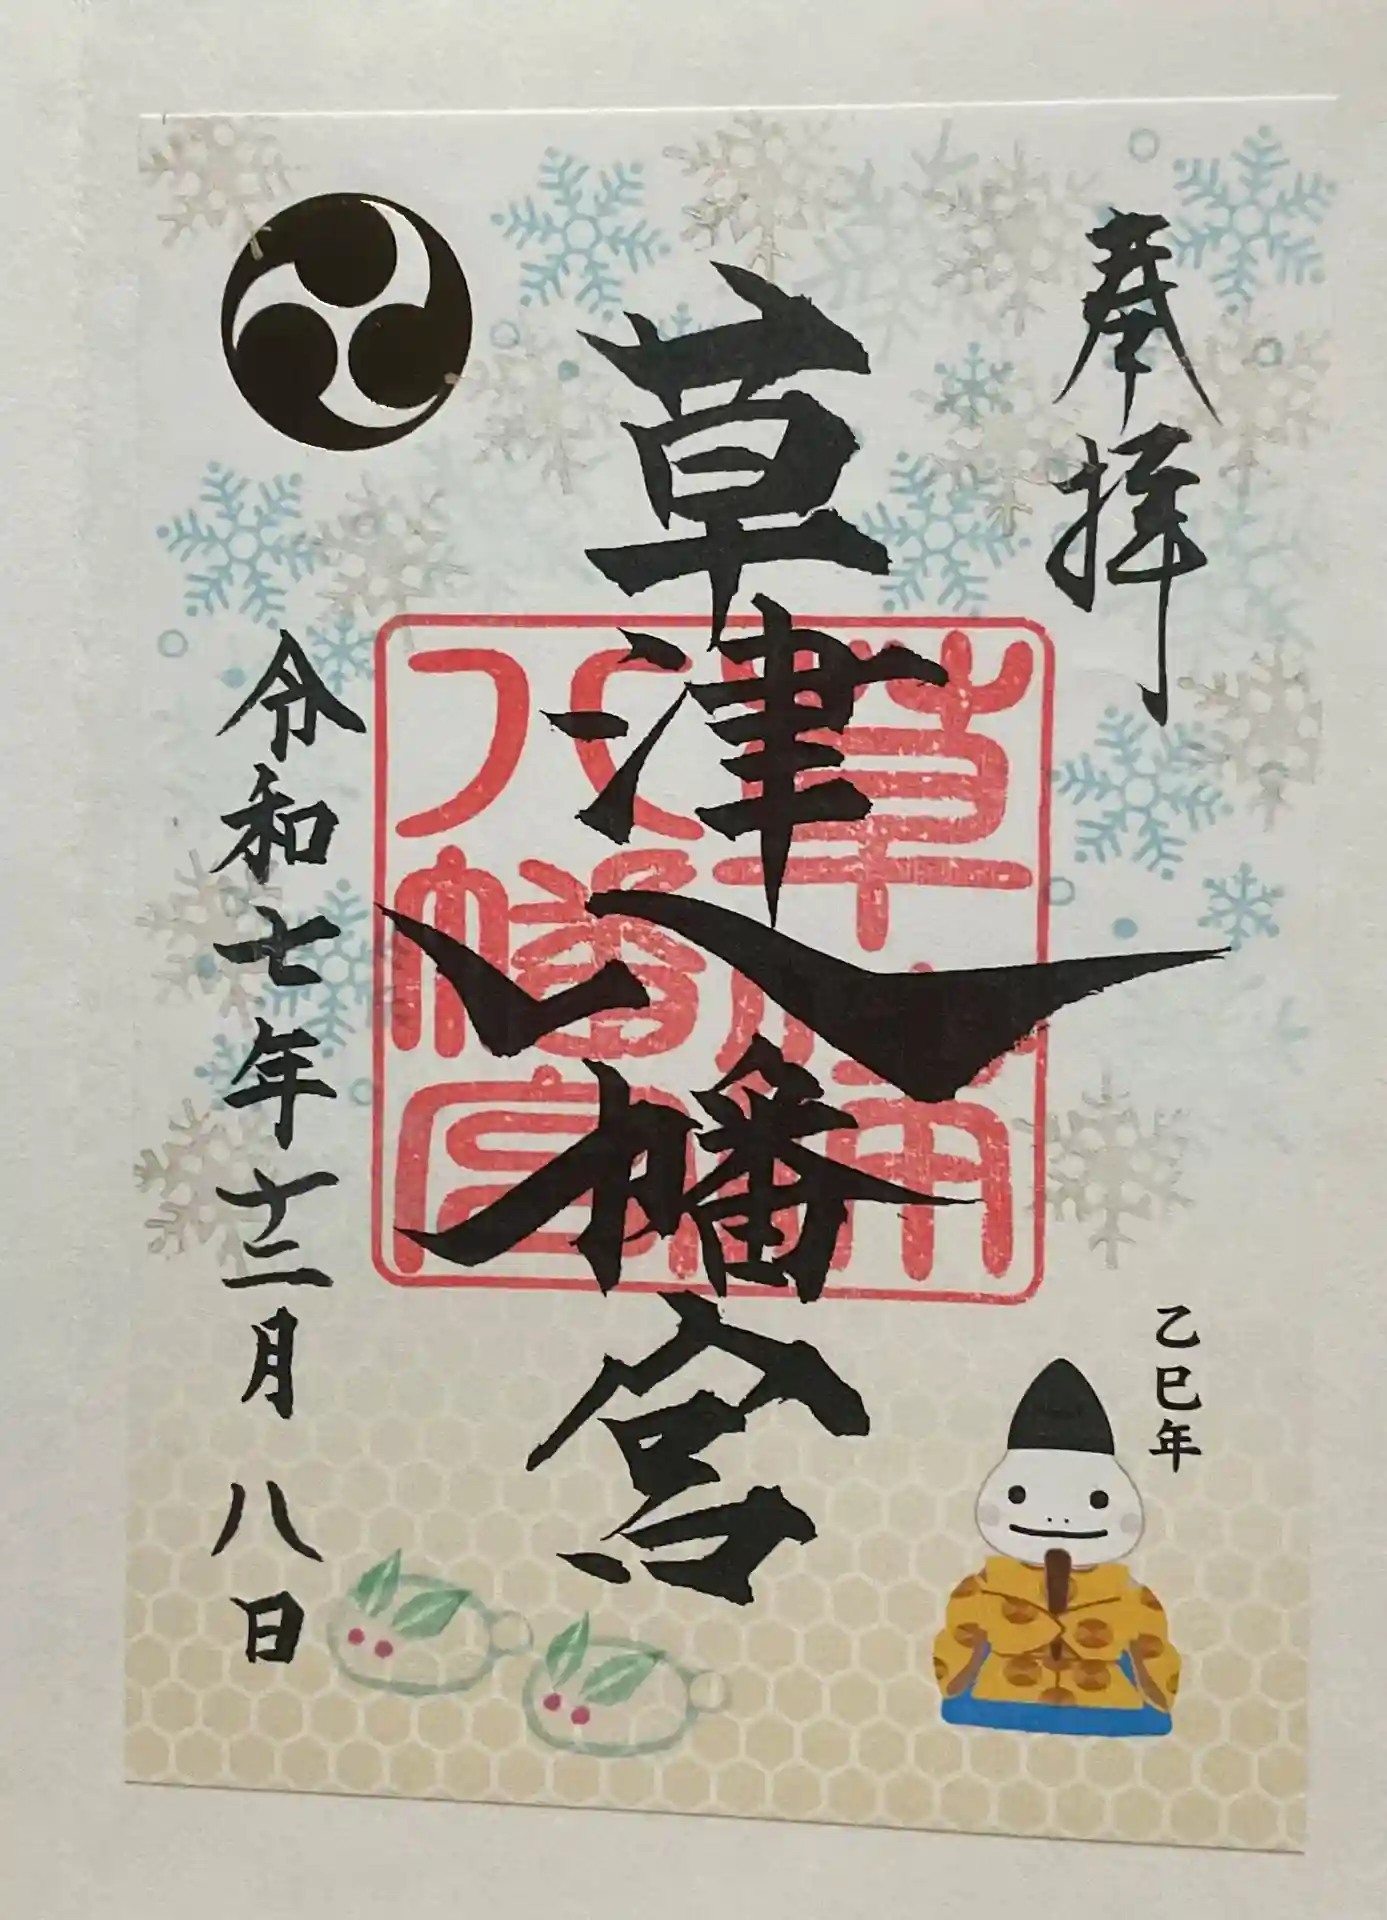 奉拝
草津八幡宮
草津南八幡宮
乙巳年
令和七年十二月八日